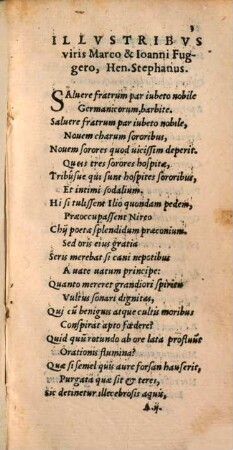 3
ILLVSTRIBVS
viris Marco & Ioanni Fug-
gero, Hen. Stephanus.
SAluere fratrum par iubeto nobile
Germanicorum, barbite.
Saluere fratrum par iubeto nobile,
Nouem charum sororibus,
Nouem sorores quod uicissim deperit.
Queis tres sorores hospitæ,
Tribusue qui sunt hospites sororibus,
Et intimi sodalium.
Hi si tulissent Ilio quondam pedem,
Præoccupassent Nireo
Chij poetæ splendidum præconium.
Sed oris eius gratia
Seris merebat si cani nepotibus
A uate uatum principe:
Quanto mereret grandiori spiritu
Vultus sonari dignitas,
Qui cũ benignus atque cultis moribus
Conspirat apto fœdere?
Quid quũ rotundo ab ore lata profluũt
Orationis flumina?
Quæ si semel quis aure forsan hauserit,
Purgata quæ sit & teres,
Sic detinetur illecebrosis aquis,
A.ij.